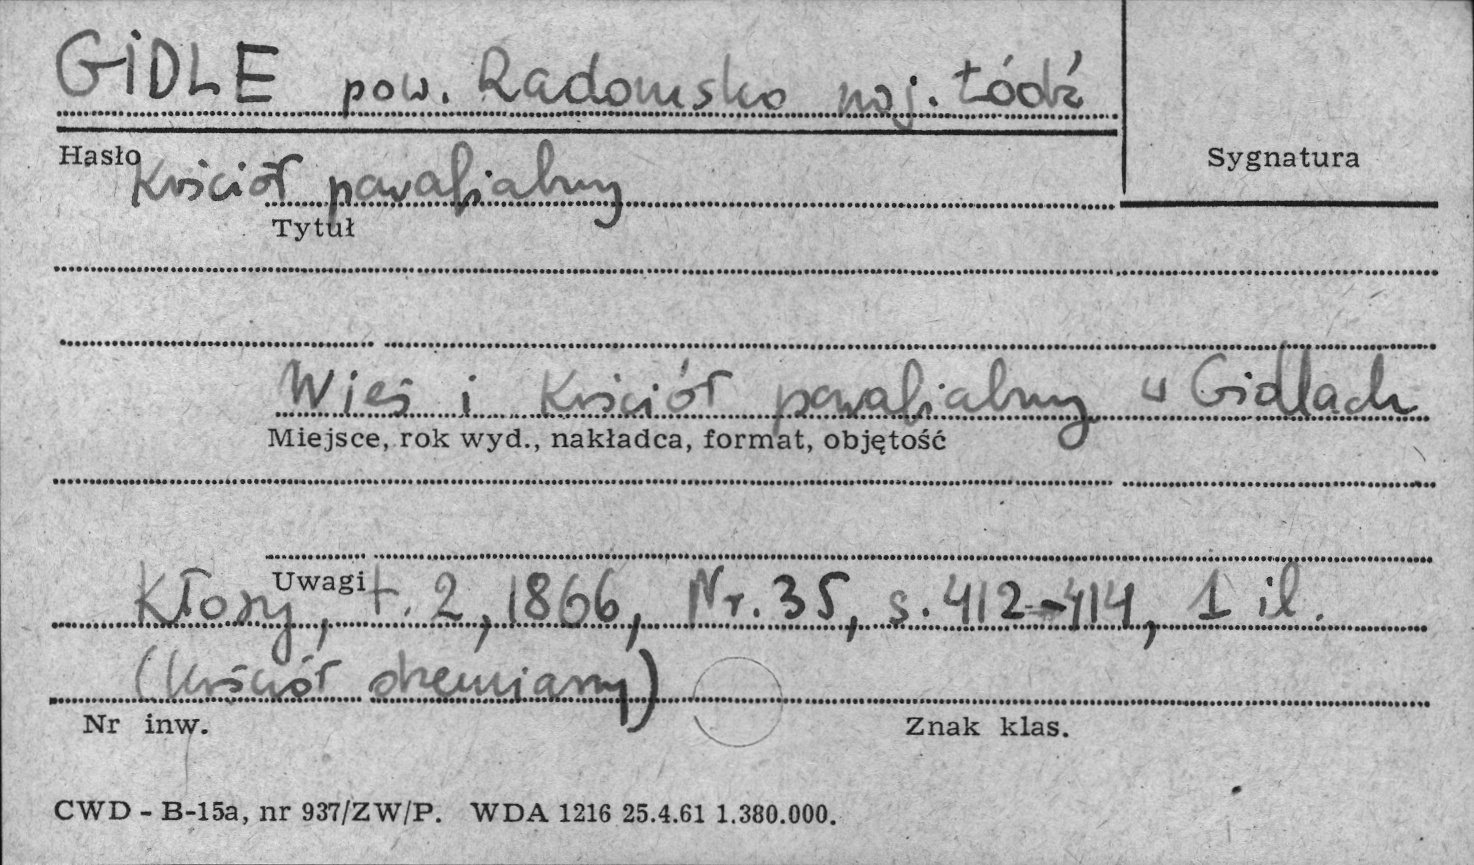 GIDLE pow. Radomsko woj. Łódź
Hasło
Sygnatura
Kościół parafialny
Tytuł
Wieś i Kościół parafialny w Gidlach
Miejsce, rok wyd., nakładca, format, objętość
Uwagi
Kłosy, t. 2, 1866, Nr. 35, s. 412-414, 1 il.
(kościół drewniany)
Nr inw.
Znak klas.
CWD - B-15a, nr 937/ZW/P. WDA 1216 25.4.61 1.380.000.